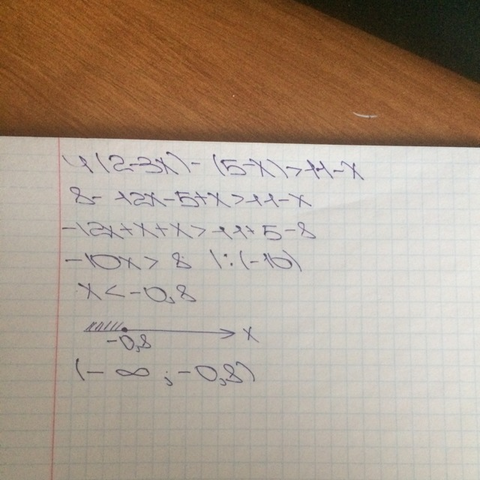 4(2-3x)-(5-x)>11-x
8-12x-5+x>11-x
-12x+x+x>11+5-8
-10x>8 |:(-10)
x<-0,8
-0,8 x
(-∞;-0,8)